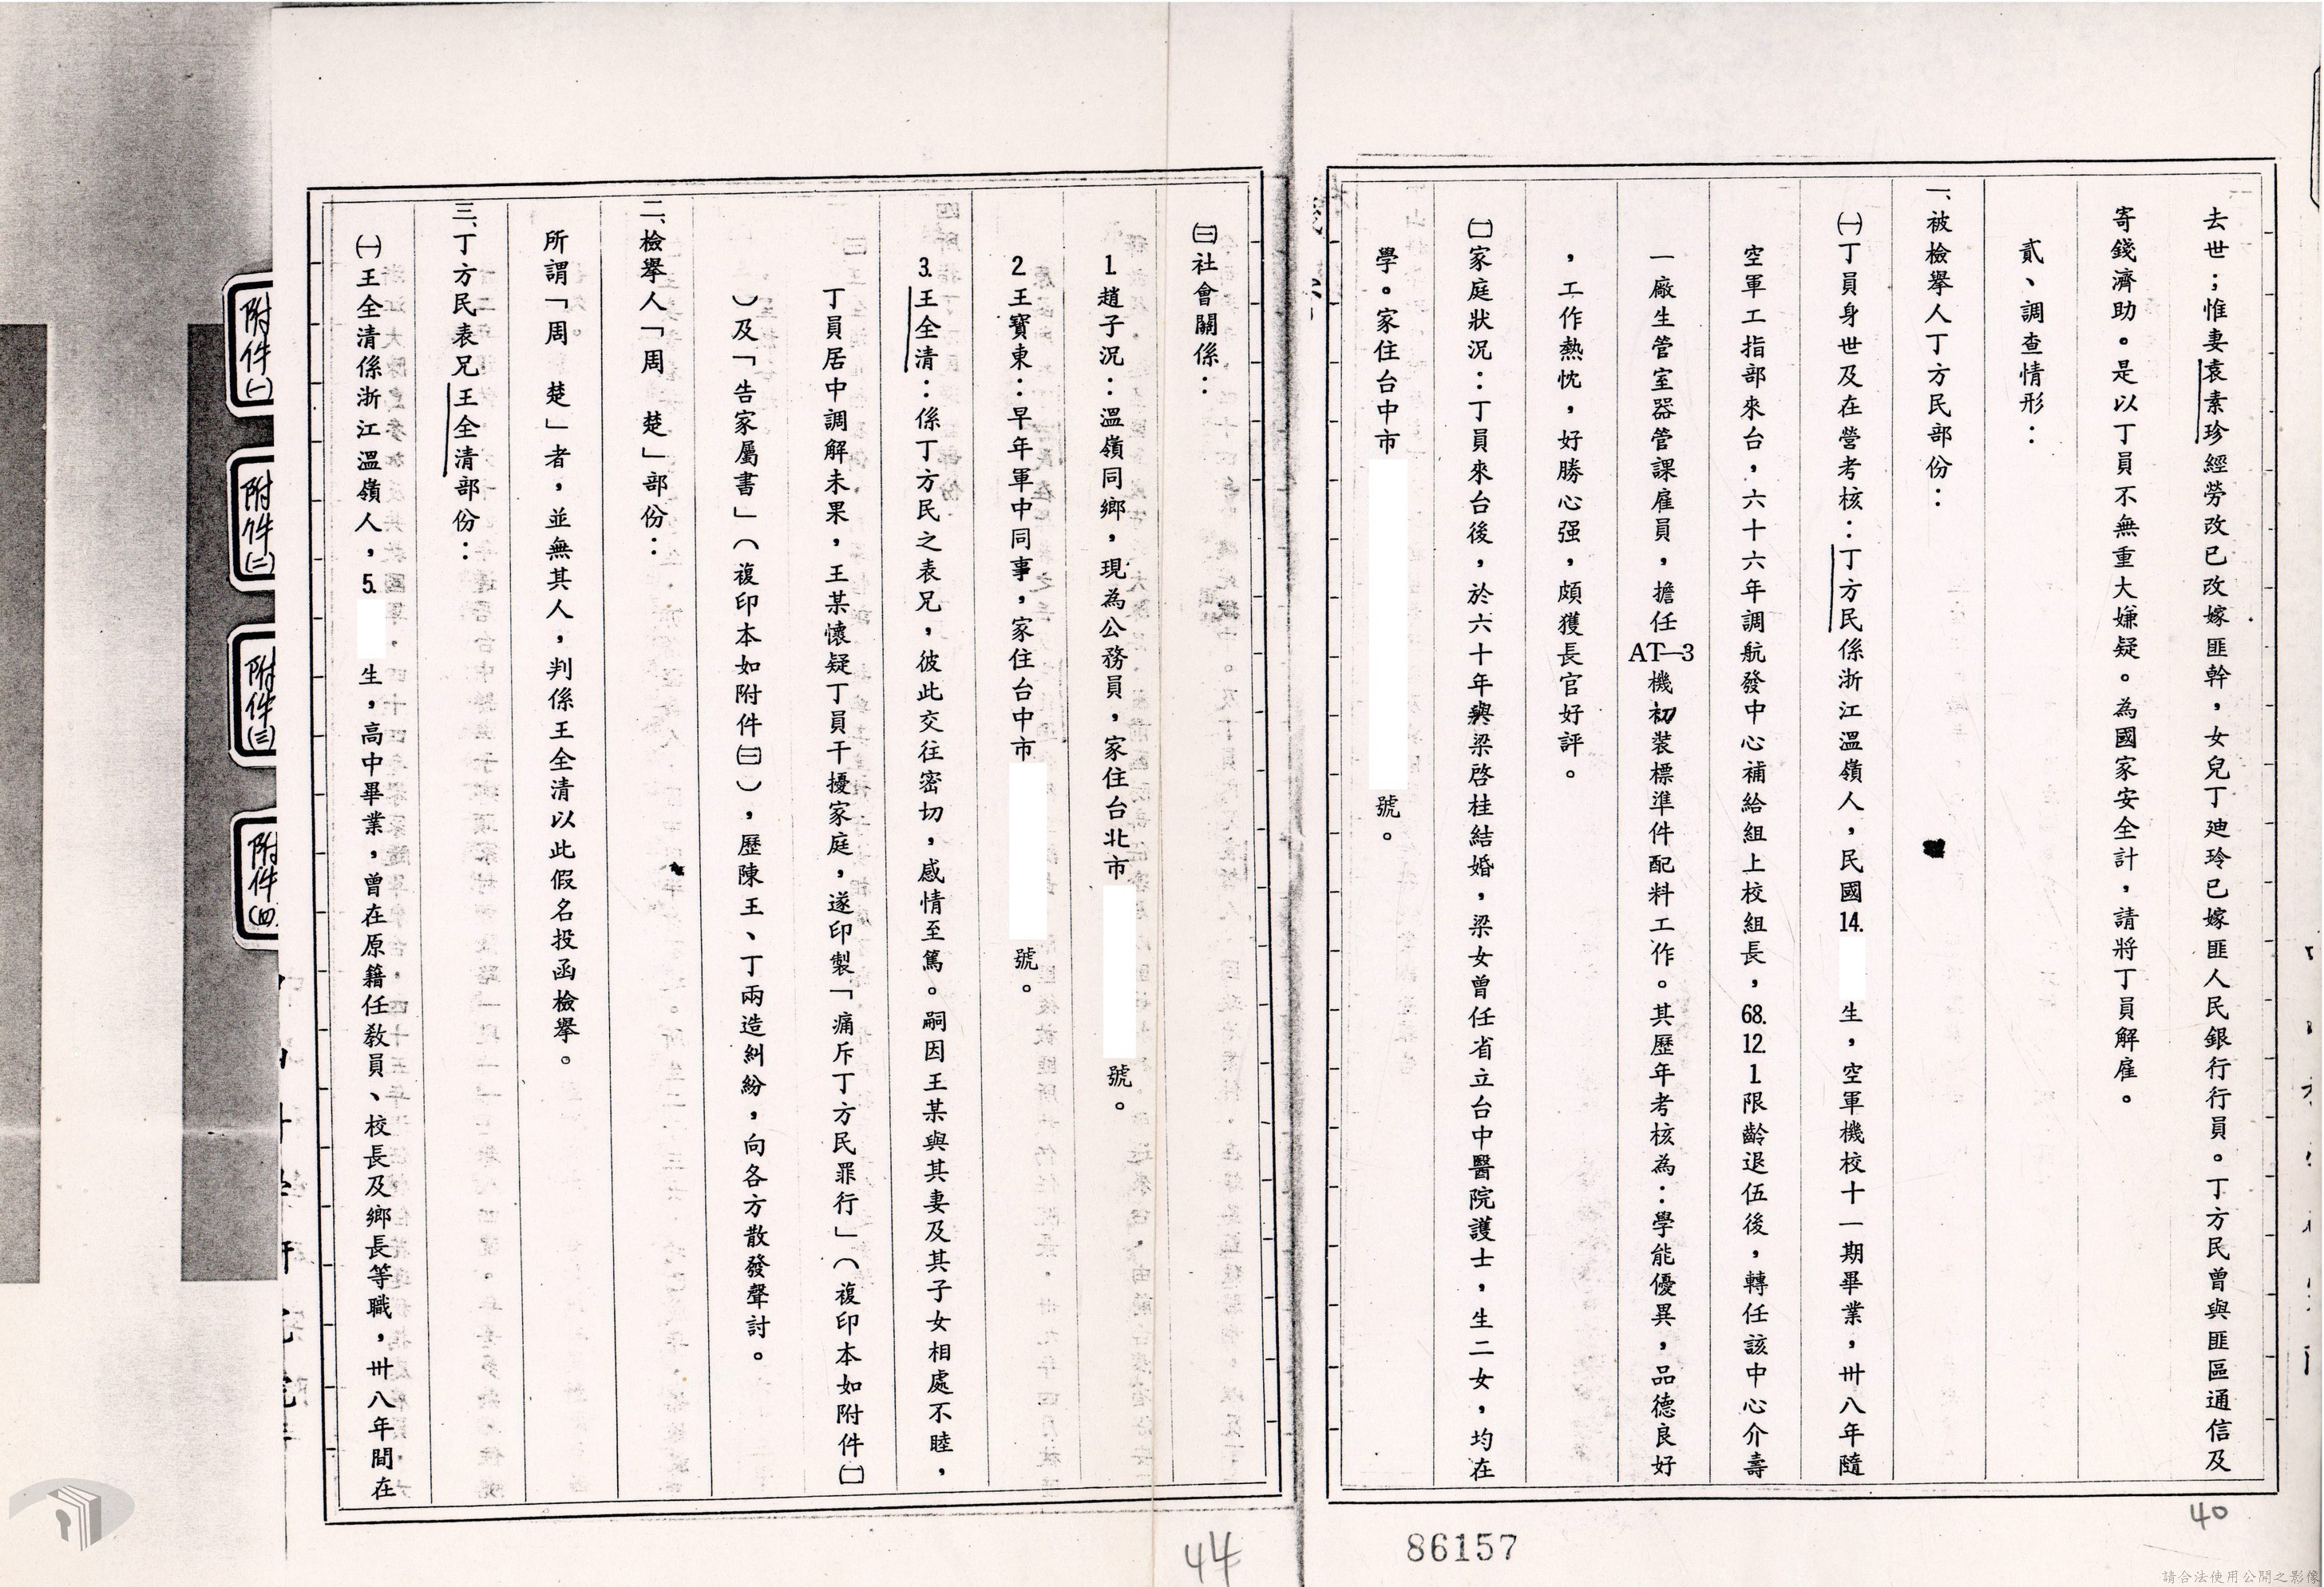 去世；惟妻袁素珍經勞改已改嫁匪幹，女兒丁廸玲已嫁匪人民銀行行員。丁方民曾與匪區通信及
寄錢濟助。是以丁員不無重大嫌疑。為國家安全計，請將丁員解雇。
貳、調查情形：
一、被檢舉人丁方民部份：
㈠丁員身世及在營考核：丁方民係浙江溫嶺人，民國14. 生，空軍機校十一期畢業，卅八年隨
空軍工指部來台，六十六年調航發中心補給組上校組長，68.12.1限齡退伍後，轉任該中心介壽
一廠生管室器管課雇員，擔任AT—3機初裝標準件配料工作。其歷年考核為：學能優異，品德良好
，工作熱忱，好勝心强，頗獲長官好評。
㈡家庭狀況：丁員來台後，於六十年與梁啓桂結婚，梁女曾任省立台中醫院護士，生二女，均在
學。家住台中市 號。
㈢社會關係：
1.趙子況：溫嶺同鄉，現為公務員，家住台北市 號。
2.王寶東：早年軍中同事，家住台中市 號。
3.王全清：係丁方民之表兄，彼此交往密切，感情至篤。嗣因王某與其妻及其子女相處不睦，
丁員居中調解未果，王某懷疑丁員干擾家庭，遂印製「痛斥丁方民罪行」（複印本如附件㈡
）及「告家屬書」（複印本如附件㈢），歷陳王、丁兩造糾紛，向各方散發聲討。
二、檢舉人「周 楚」部份：
所謂「周 楚」者，並無其人，判係王全清以此假名投函檢舉。
三、丁方民表兄王全清部份：
㈠王全清係浙江溫嶺人，5. 生，高中畢業，曾在原籍任教員、校長及鄉長等職，卅八年間在
附件㈠
附件㈡
附件㈢
附件㈣
40
86157
44
請合法使用公開之影像